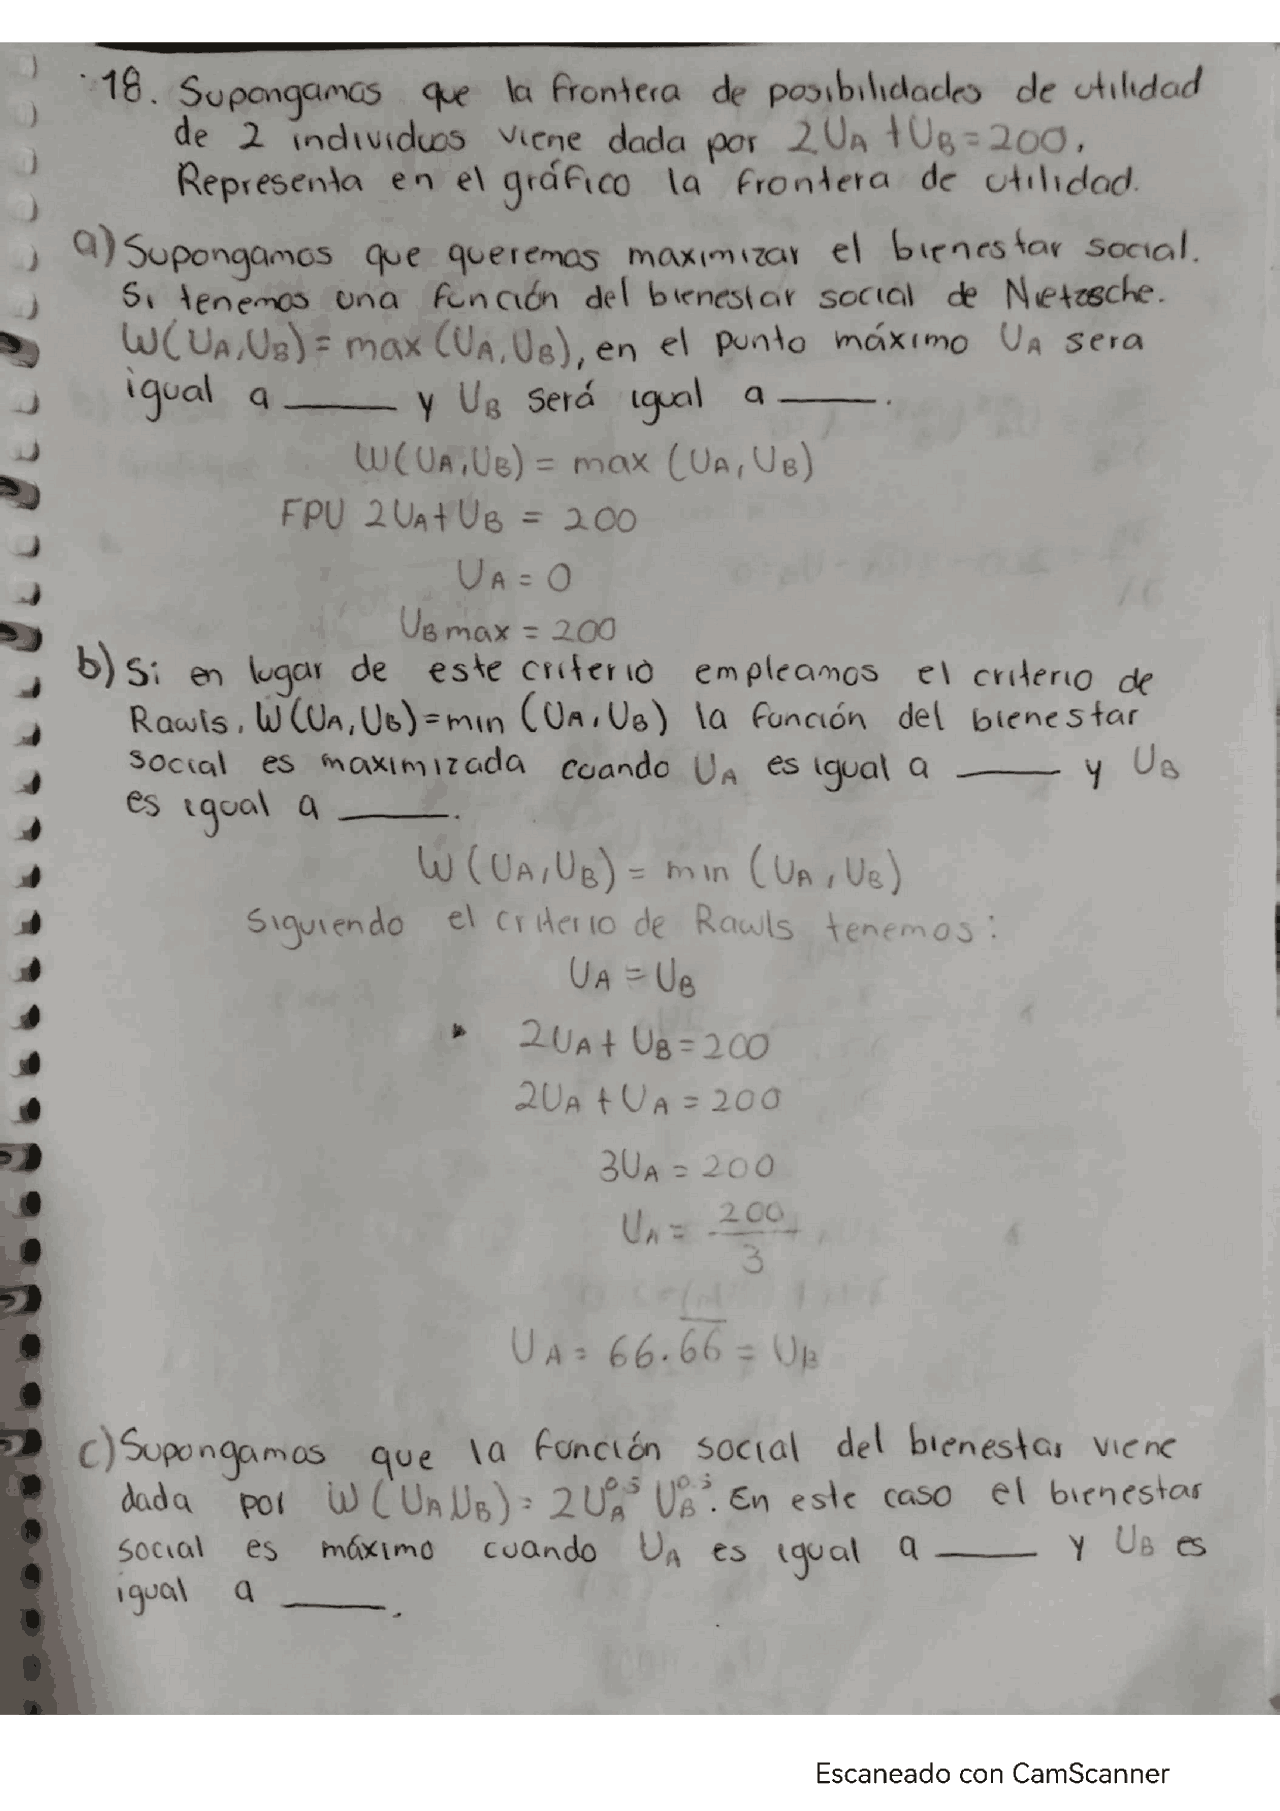 18. Supongamos que la frontera de posibilidades de utilidad
de 2 individuos viene dada por 2UA + UB = 200.
Representa en el gráfico la frontera de utilidad.
a) Supongamos que queremos maximizar el bienestar social.
Si tenemos una función del bienestar social de Nietzsche.
W(UA,UB) = max (UA,UB), en el punto máximo UA sera
igual a ____ y UB será igual a ____.
W(UA,UB) = max (UA,UB)
FPU 2UA+UB = 200
UA = 0
UB max = 200
b) Si en lugar de este criterio empleamos el criterio de
Rawls, W(UA,UB)=min (UA,UB) la función del bienestar
social es maximizada cuando UA es igual a ____ y UB
es igual a ____.
W(UA,UB) = min (UA,UB)
Siguiendo el criterio de Rawls tenemos:
UA = UB
2UA + UB = 200
2UA + UA = 200
3UA = 200
UA = 200/3
UA = 66.66 = UB
c) Supongamos que la función social del bienestar viene
dada por W(UA,UB) = 2UA^0.5 UB^0.5. En este caso el bienestar
social es máximo cuando UA es igual a ____ y UB es
igual a ____.
Escaneado con CamScanner